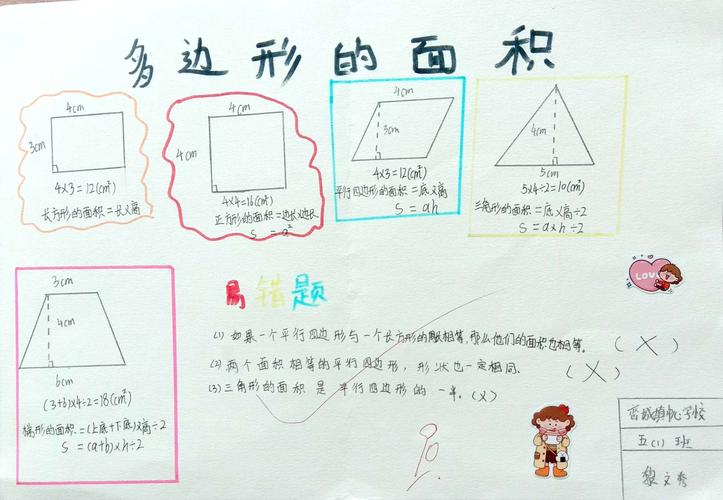 多边形的面积
4cm
3cm
4×3=12(cm²)
长方形的面积=长×高
4cm
4cm
4×4=16(cm²)
正方形的面积=边长×边长
S=a²
4cm
3cm
4×3=12(cm²)
平行四边形的面积=底×高
S=ah
4cm
5cm
5×4÷2=10(cm²)
三角形的面积=底×高÷2
S=a×h÷2
3cm
4cm
6cm
(3+6)×4÷2=18(cm²)
梯形的面积=(上底+下底)×高÷2
S=(a+b)×h÷2
易错题
LOVE
(1)如果一个平行四边形与一个长方形的周长相等,那么他们的面积也相等。(×)
(2)两个面积相等的平行四边形,形状也一定相同。(×)
(3)三角形的面积是平行四边形的一半。(×)
学校
五(1)班
文秀